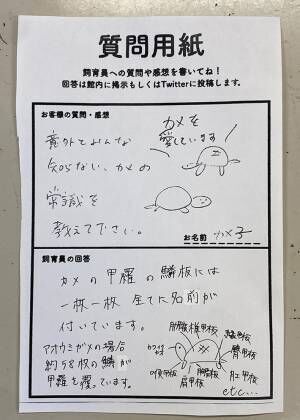 質問用紙
飼育員への質問や感想を書いてね！
回答は館内に掲示もしくはTwitterに投稿します。
お客様の質問・感想
カメを
愛しています
意外とみんな
知らない、カメの
常識を
教えて下さい。
お名前 カメ子
飼育員の回答
カメの甲羅の鱗板には
一枚一枚 全てに名前が
付いています。
アオウミガメの場合
約58枚の鱗が
甲羅を覆っています。
肛甲板
肩甲板
etc...